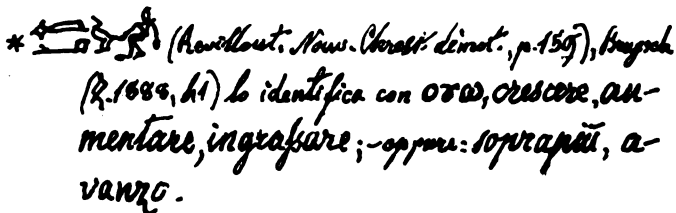 * (Revillout. Nouv. Chrest. démot., p.159), Brugsch
(Z.1888, 41) lo identifica con ⲟⲧⲱ, crescere, au-
mentare, ingraſsare; - oppure: soprapiù, a-
vanzo.